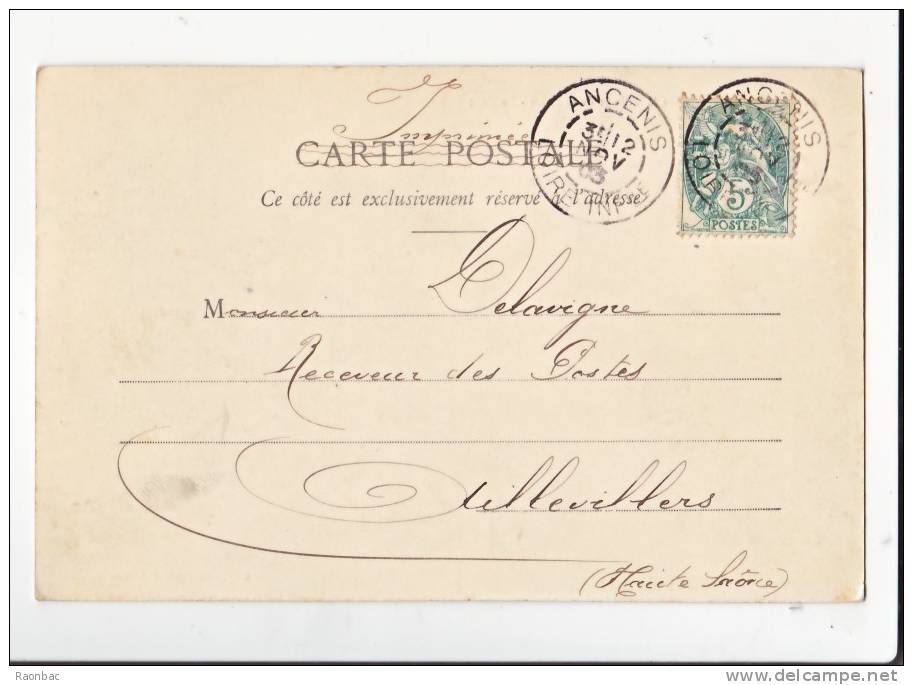 Imprimée
CARTE POSTALE
Ce côté est exclusivement réservé à l'adresse
ANCENIS
3E 12
NOV
03
LOIRE INFRE
ANCENIS
LOIRE
5
POSTES
Monsieur Delavigne
Receveur des Postes
Aillevillers
(Haute Saône)
Raonbac
delcampe.net